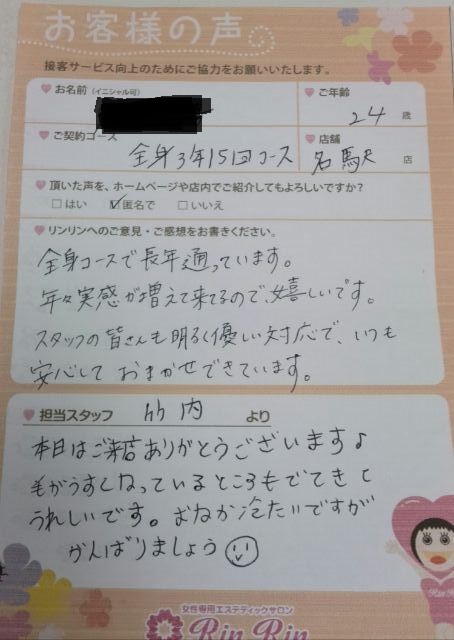 お客様の声
接客サービス向上のためにご協力をお願いいたします。
お名前（イニシャル可）
ご年齢
24 歳
ご契約コース
全身3年15回コース
店舗
名駅 店
頂いた声を、ホームページや店内でご紹介してもよろしいですか?
□はい ☑匿名で □いいえ
リンリンへのご意見・ご感想をお書きください。
全身コースで長年通っています。
年々実感が増えて来てるので、嬉しいです。
スタッフの皆さんも明るく優しい対応で、いつも
安心しておまかせできています。
担当スタッフ 竹内 より
本日はご来店ありがとうございます♪
毛がうすくなっているところもでてきて
うれしいです。おなか冷たいですが
がんばりましょう
女性専用エステティックサロン
Rin Rin
Rin Rin